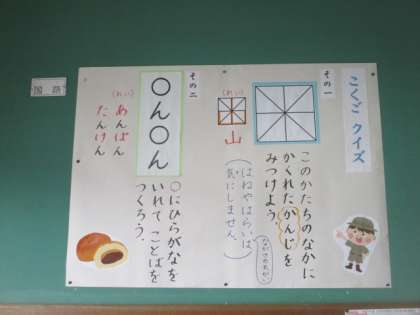 こくご クイズ
その一
(れい)
山
このかたちのなかに
かくれたかんじを
みつけよう。
(はねやはらいは
気にしません。)
その二
〇ん〇ん
(れい)
あんぱん
たんけん
〇にひらがなを
いれて ことばを
つくろう。
国語